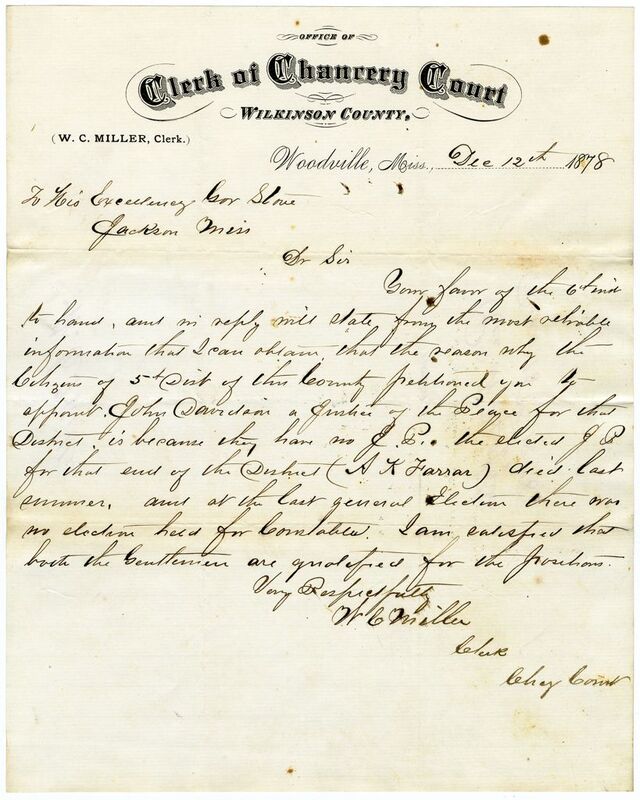 OFFICE OF
Clerk of Chancery Court
WILKINSON COUNTY.
(W. C. MILLER, Clerk.)
Woodville, Miss., Dec 12th 1878
To His Excellency Gov Stone
Jackson Miss
Dr Sir
Your favor of the 6th inst
to hand, and in reply will state from the most reliable
information that I can obtain, that the reason why the
Citizens of 5th Dist of this County petitioned you to
appoint John Davidson a Justice of the Peace for that
District, is because they have no J. P. the elected J P
for that end of the District (A K Farrar) died last
summer, and at the last general Election there was
no election held for Constable. I am satisfied that
both the Gentlemen are qualified for the positions.
Very Respectfully
W C Miller
Clerk
Chcy Court